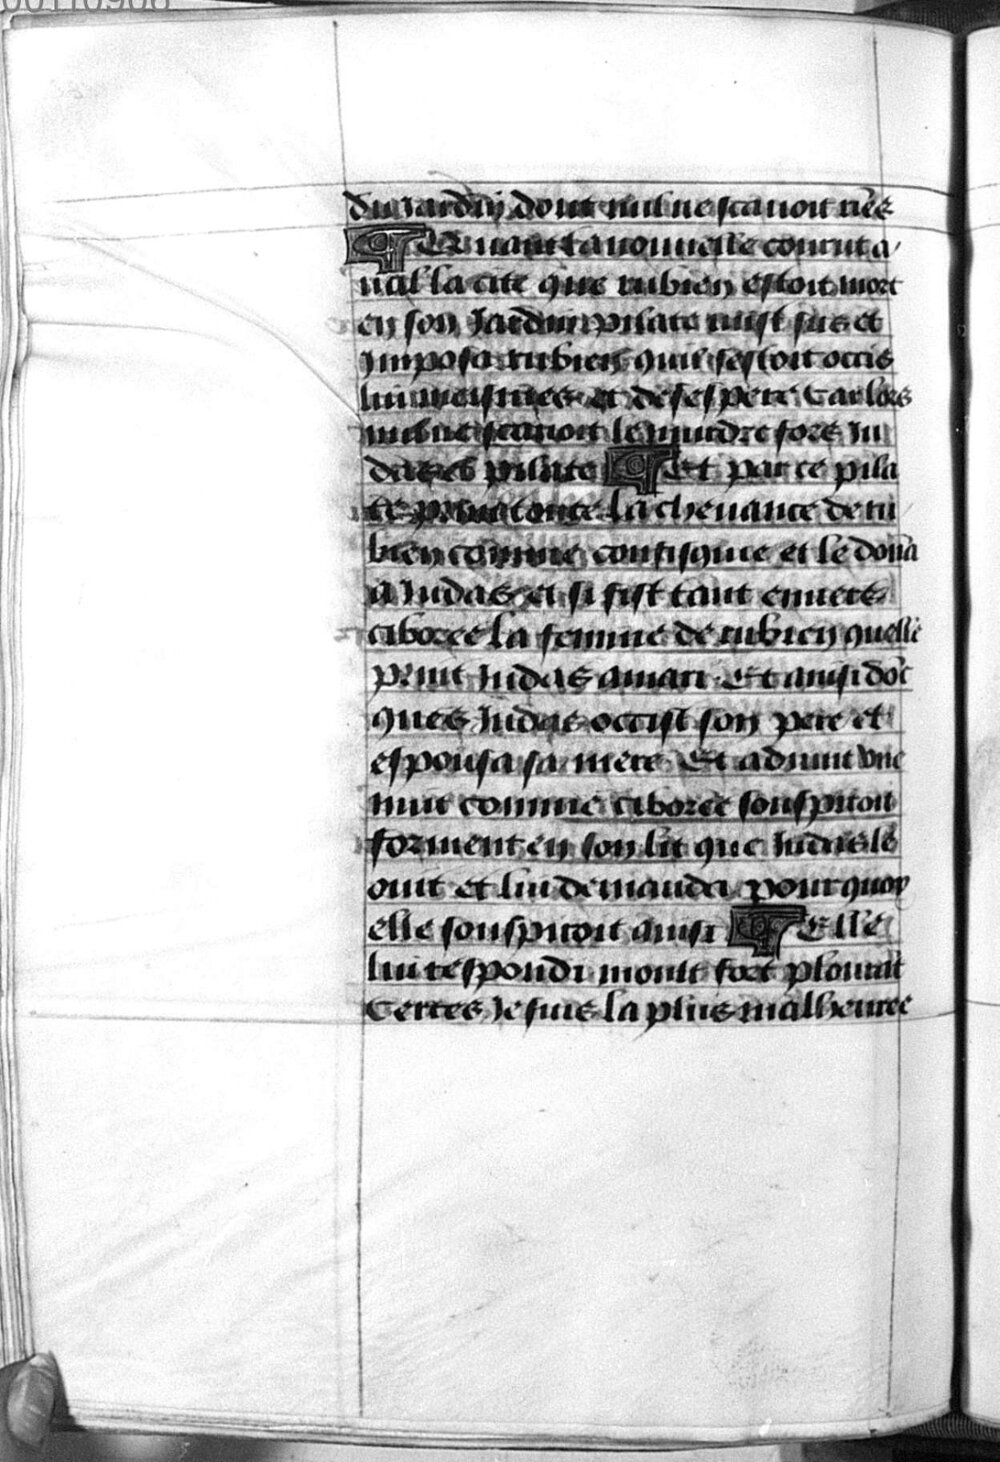 00110908
du Jardin dont nul ne scauoit riẽs
¶ Et quant la nouuelle courut a
ual la cite que rubien estoit mort
en son Jardin pilate mist sus et
Imposa rubien quil sestoit occis
lui meismes et desespere Car lors
nul ne scauoit le murdre fors Ju
das et pilate ¶ Et par ce pila
te print toute la cheuance de ru
bien comme confisquie et le dõna
a Judas et si fist tant enuers
ciboree la femme de rubien quelle
print Judas a mari. Et ainsi dõc
ques Judas occist son pere et
espousa sa mere Et aduint vne
nuit comme ciboree souspiroit
forment en son lit que Judas le
ouit et lui demanda pourquoy
elle souspiroit ainsi ¶ Elle
lui respondi moult fort plourãt
Certes Je suis la plus malheuree